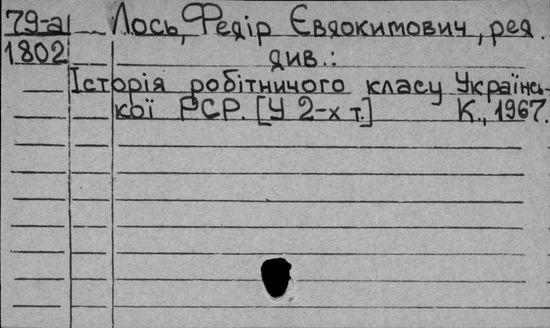 79-а Лось, Федір Євдокимович, ред.
1802 див.:
Історія робітничого класу Українсь-
кої РСР. [У 2-х т.] К., 1967.